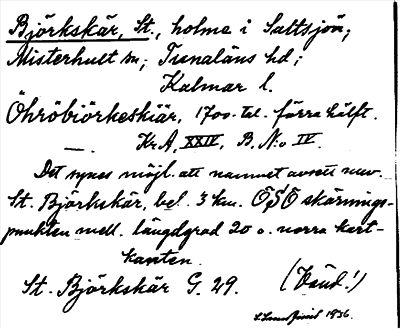 Björkskär, St., holme i Saltsjön,
Misterhult sn; Tunaläns hd;
Kalmar l.
Öhröbiörkeskiär, 1700-tal. förra hälft.
Kr. A, XXIV, B. No IV.
Det synes möjl. att namnet avsett nuv.
St. Björkskär, bel. 3 km. ÖSÖ skärnings-
punkten mell. längdgrad 20 o. norra kart-
kanten.
St. Björkskär G. 29. (Vänd!)
1936.